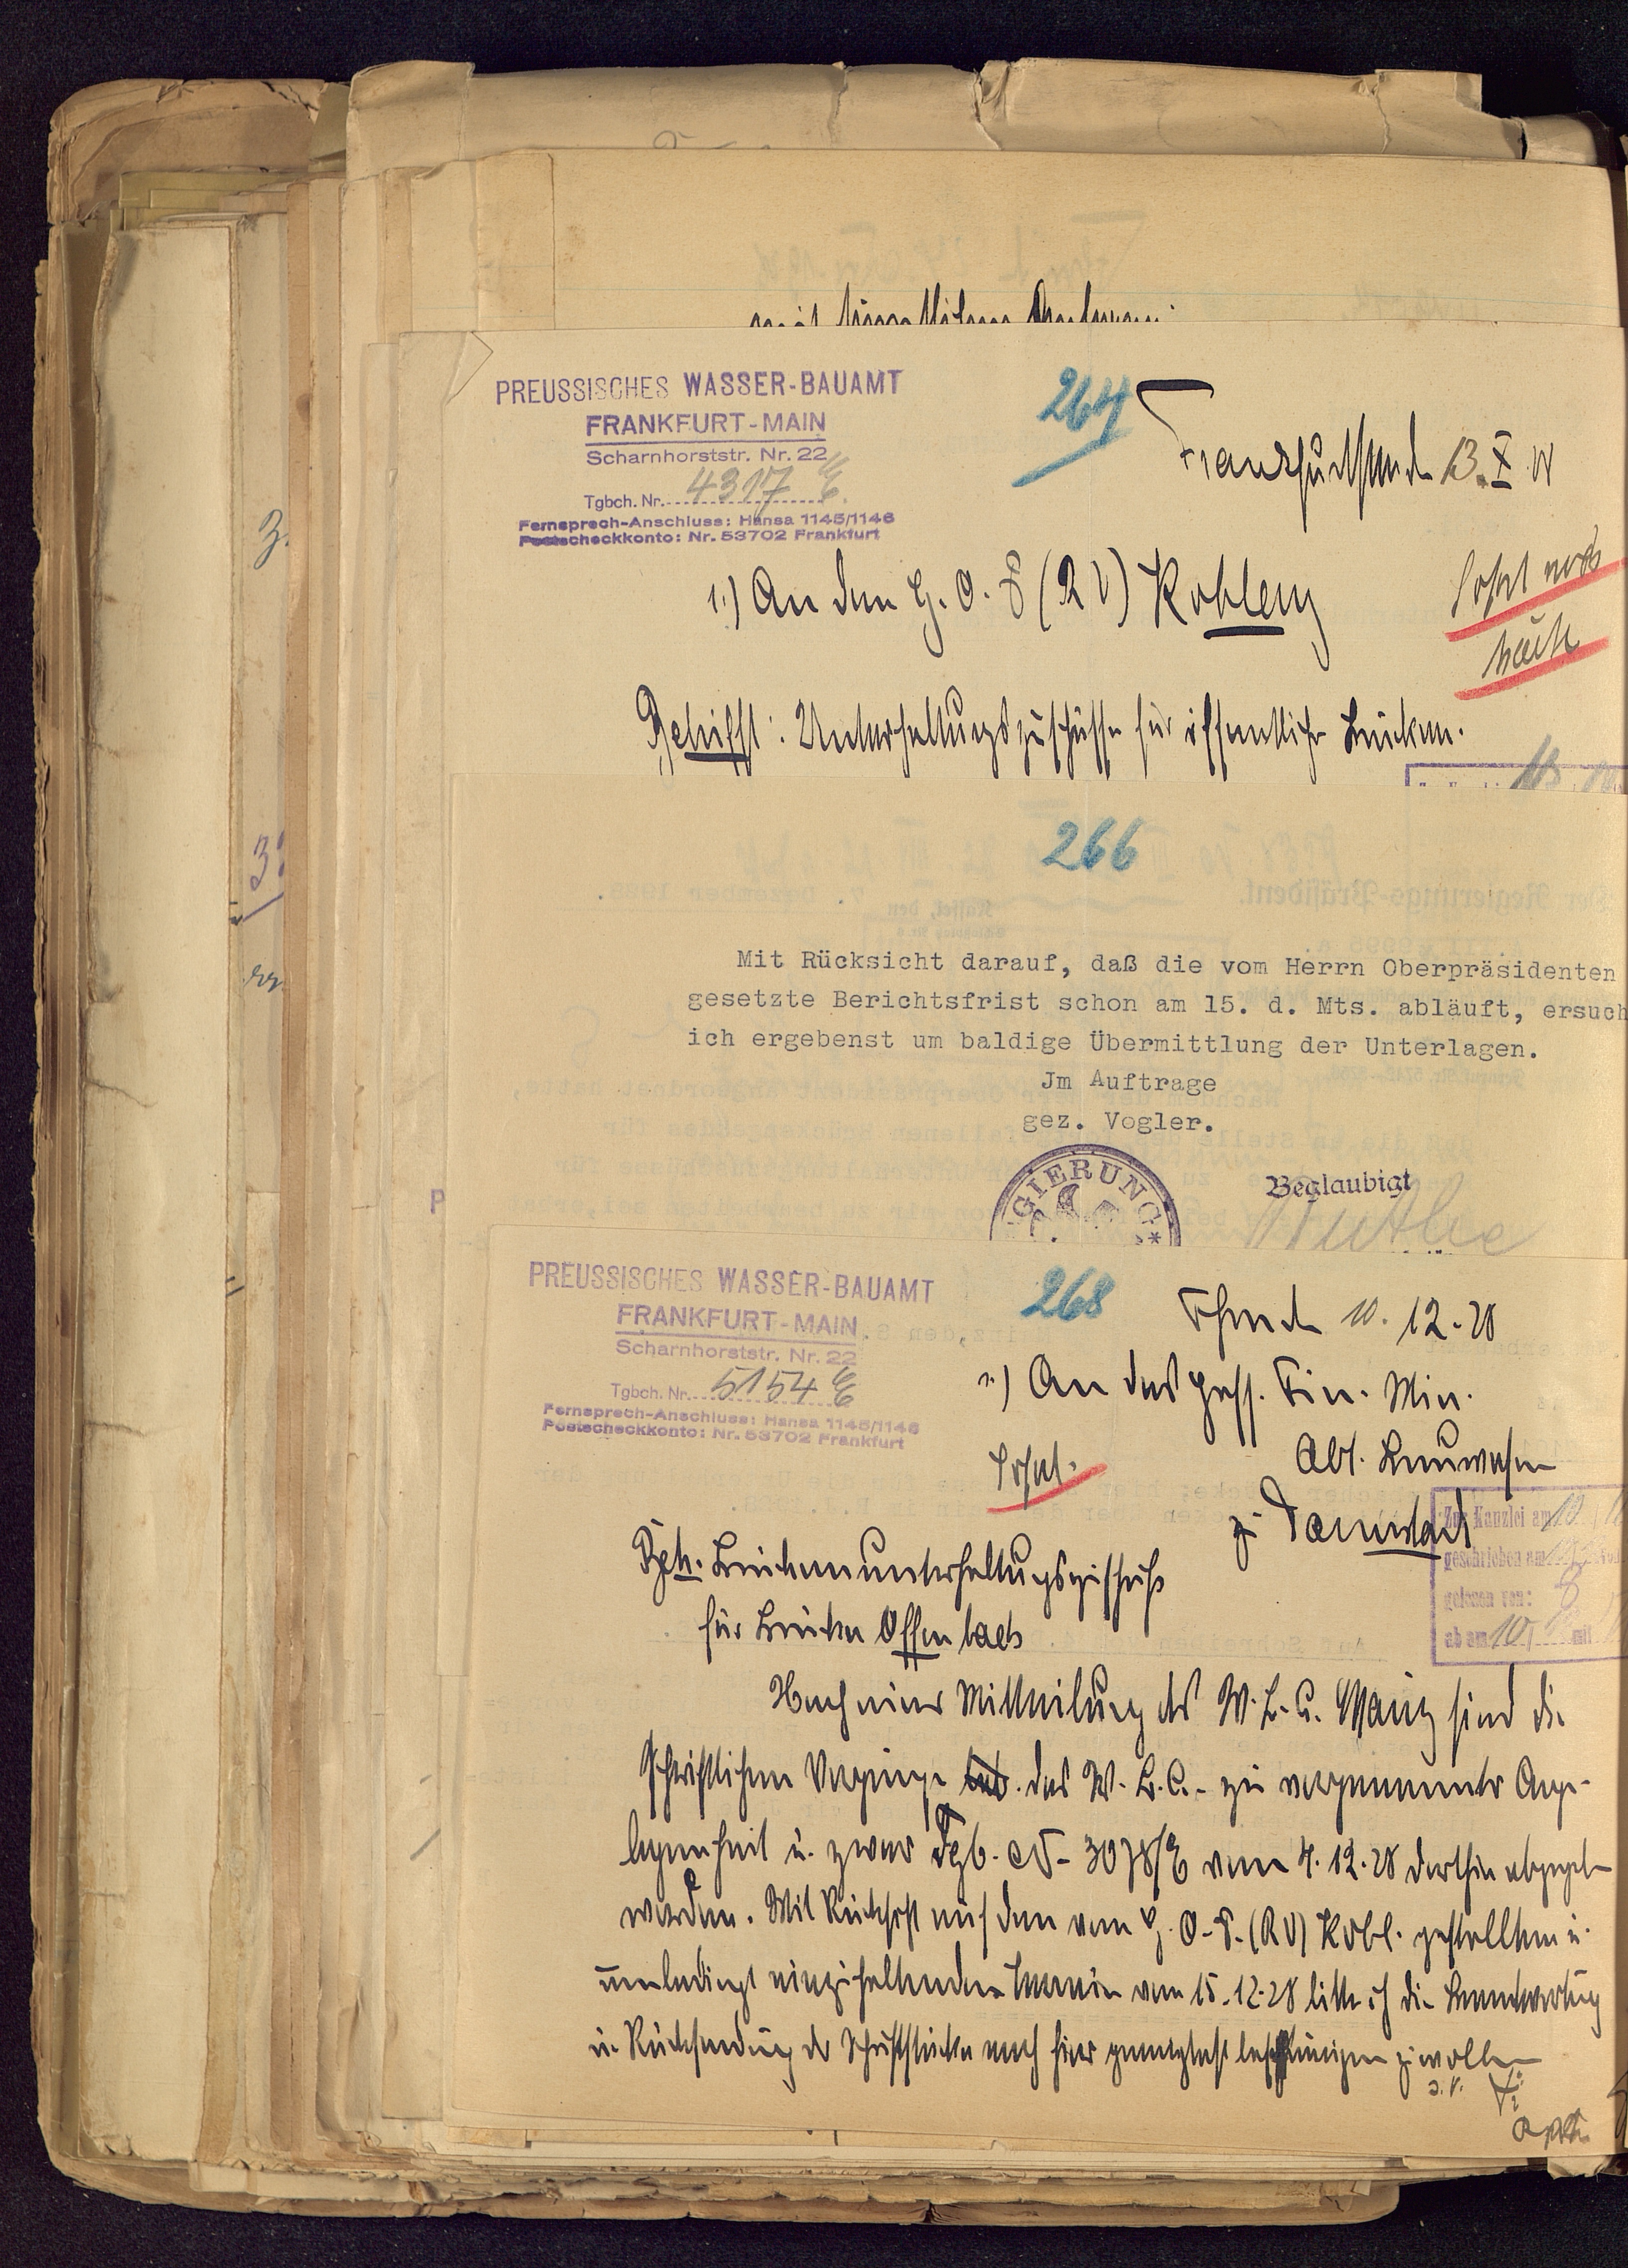 mit sämtlichen Anlagen.
PREUSSISCHES WASSER-BAUAMT
FRANKFURT-MAIN
Scharnhorststr. Nr. 22
Tgbch. Nr. 4317 E.
Fernsprech-Anschluss: Hansa 1145/1146
Postscheckkonto: Nr. 53702 Frankfurt
264
Frankfurt 13. X
1.) An den H. O. P (R V) Koblenz
Sofort noch
heute
Betrifft: Unterhaltungszuschüsse für öffentliche Brücken.
266
Mit Rücksicht darauf, daß die vom Herrn Oberpräsidenten
gesetzte Berichtsfrist schon am 15. d. Mts. abläuft, ersuch
ich ergebenst um baldige Übermittlung der Unterlagen.
Jm Auftrage
gez. Vogler.
GIERUNG
Beglaubigt
P
PREUSSISCHES WASSER-BAUAMT
FRANKFURT-MAIN
Scharnhorststr. Nr. 22
Tgbch. Nr. 5154 E
Fernsprech-Anschluss: Hansa 1145/1146
Postscheckkonto: Nr. 53702 Frankfurt
268
10. 12. 28
1.) An das Hess. Fin. Min.
Abt. Bauwesen
zu Darmstadt
Sofort.
Zur Kanzlei am 10
geschrieben am
gelesen von:
ab am 10 mit
Betr. Brückenunterhaltungszuschuß
für Brücke Offenbach
Nach einer Mitteilung des W. B. A. Mainz sind die
schriftlichen Vorgänge des W. B. A. zu vorgenannter Ange-
legenheit u. zwar Tgb. N 3078/E vom 4. 12. 28 dorthin abgegeben
worden. Mit Rücksicht auf den vom H. O. P. (R V) Kobl. gestellten u.
unbedingt einzuhaltenden Termin vom 15. 12. 28 bitte ich die Beantwortung
u. Rücksendung der Schriftstücke nach hier gewogenst beschleunigen zu wollen